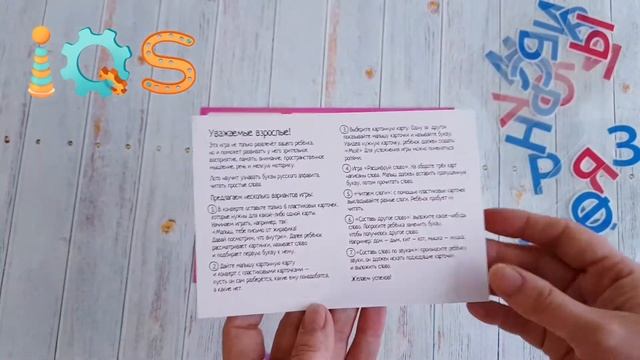 iQS
Уважаемые взрослые!
Эта игра не только развлечёт вашего ребёнка,
но и поможет развивать у него зрительное
восприятие, память, внимание, пространственное
мышление, речь и мелкую моторику.
Лото научит узнавать буквы русского алфавита,
читать простые слова.
Предлагаем несколько вариантов игры:
1 В конверте оставьте только 6 пластиковых карточек,
которые нужны для какой-либо одной карты.
Начинаем играть, например, так:
«Малыш, тебе письмо от жирафика!
Давай посмотрим, что внутри». Далее ребёнок
рассматривает картинки, называет слово
и подбирает первую букву к нему.
2 Дайте малышу картонную карту
и конверт с пластиковыми карточками —
пусть он сам разберётся, какие ему понадобятся,
а какие нет.
3 Выберите картонную карту. Одну за другой
показывайте малышу карточки и называйте букву.
Увидев нужную карточку, ребёнок должен сказать:
«Моё!» Для усложнения игры можно поменяться
ролями.
4 Игра «Расшифруй слово». На обороте трёх карт
написаны слова. Малыш должен вставить пропущенную
букву, потом прочитать слово.
5 «Читаем слоги»: с помощью пластиковых карточек
выкладывайте разные слоги. Ребёнок пробует их
читать.
6 «Составь другое слово»: выложите какое-нибудь
слово. Попросите ребёнка заменить букву,
чтобы получилось другое слово.
Например: дом — дым, кит — кот, мышка — мошка.
7 «Составь слово по звукам»: произносите ребёнку
звуки, он должен искать подходящие карточки
и выложить слово.
Желаем успехов!
Ы
Б
Н
Р
Я
Ф
З